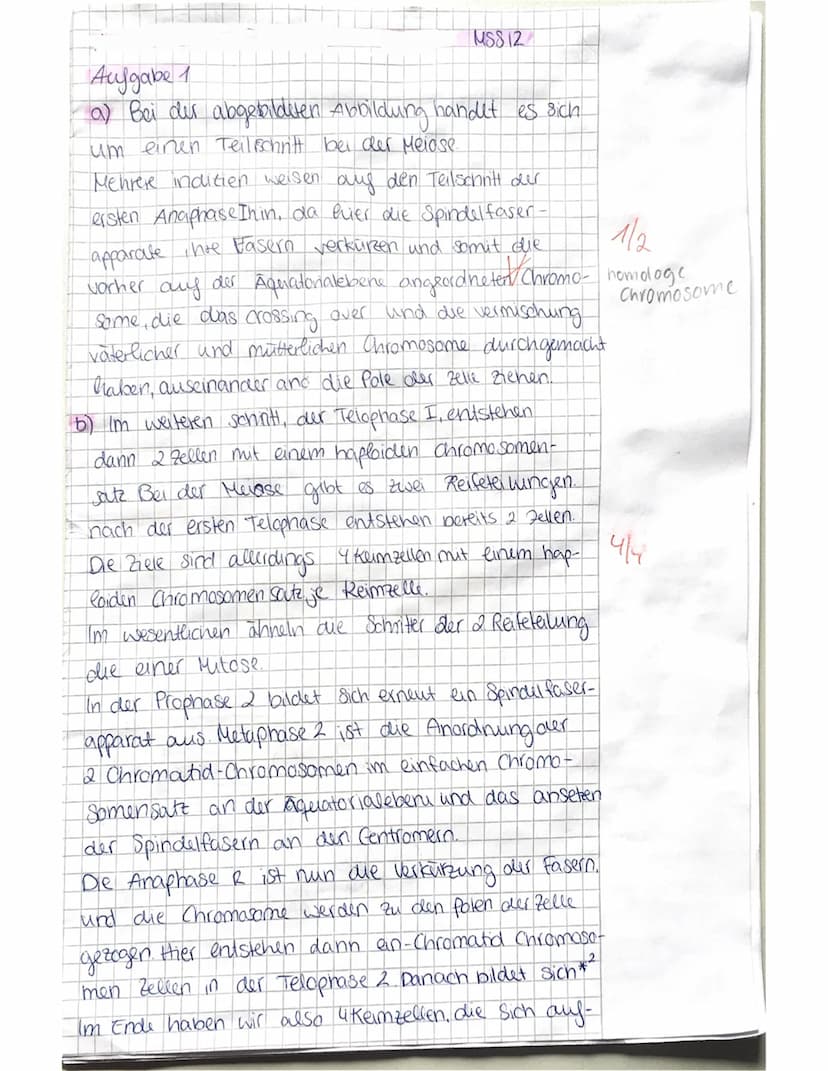 MSS12
Aufgabe 1
a) Bei der abgebildeten Abbildung handelt es sich
um einen Teilschritt bei der Meiose
Mehrere indizien weisen auf den Teilschritt der
ersten Anaphase I hin, da hier die Spindelfaser-
apparate ihre Fasern verkürzen und somit die
vorher auf der Äquatorialebene angeordneten Chromo-
some, die das crossing over und die vermischung
väterlicher und mütterlichen Chromosome durchgemacht
haben, auseinander and die Pole der zelle ziehen.
1/2
homologe
Chromosome
b) Im weiteren schritt, der Telophase I, entstehen
dann 2 Zellen mit einem haploiden chromosomen-
satz Bei der Meiose gibt es zwei Reifeteilungen.
nach der ersten Telophase entstehen bereits 2 Zellen.
Die Ziele sind allerdings 4 Keimzellen mit einem hap-
loiden Chromosomensatz je Keimzelle.
4/4
Im wesentlichen ähneln die Schritter der 2 Reifeteilung
die einer Mitose.
In der Prophase 2 bildet sich erneut ein Spindelfaser-
apparat aus Metaphase 2 ist die Anordnung der
2 Chromatid-Chromosomen im einfachen Chromo-
somensatz an der Äquatorialebene und das ansetzen
der Spindelfasern an den Centromern.
Die Anaphase 2 ist nun die Verkürzung der Fasern,
und die Chromosome werden zu den Polen der Zelle
gezogen Hier entstehen dann ein-Chromatid Chromoso-
men Zellen in der Telophase 2 Danach bildet sich *2
Im Ende haben wir also 4 Keimzellen, die sich auf-